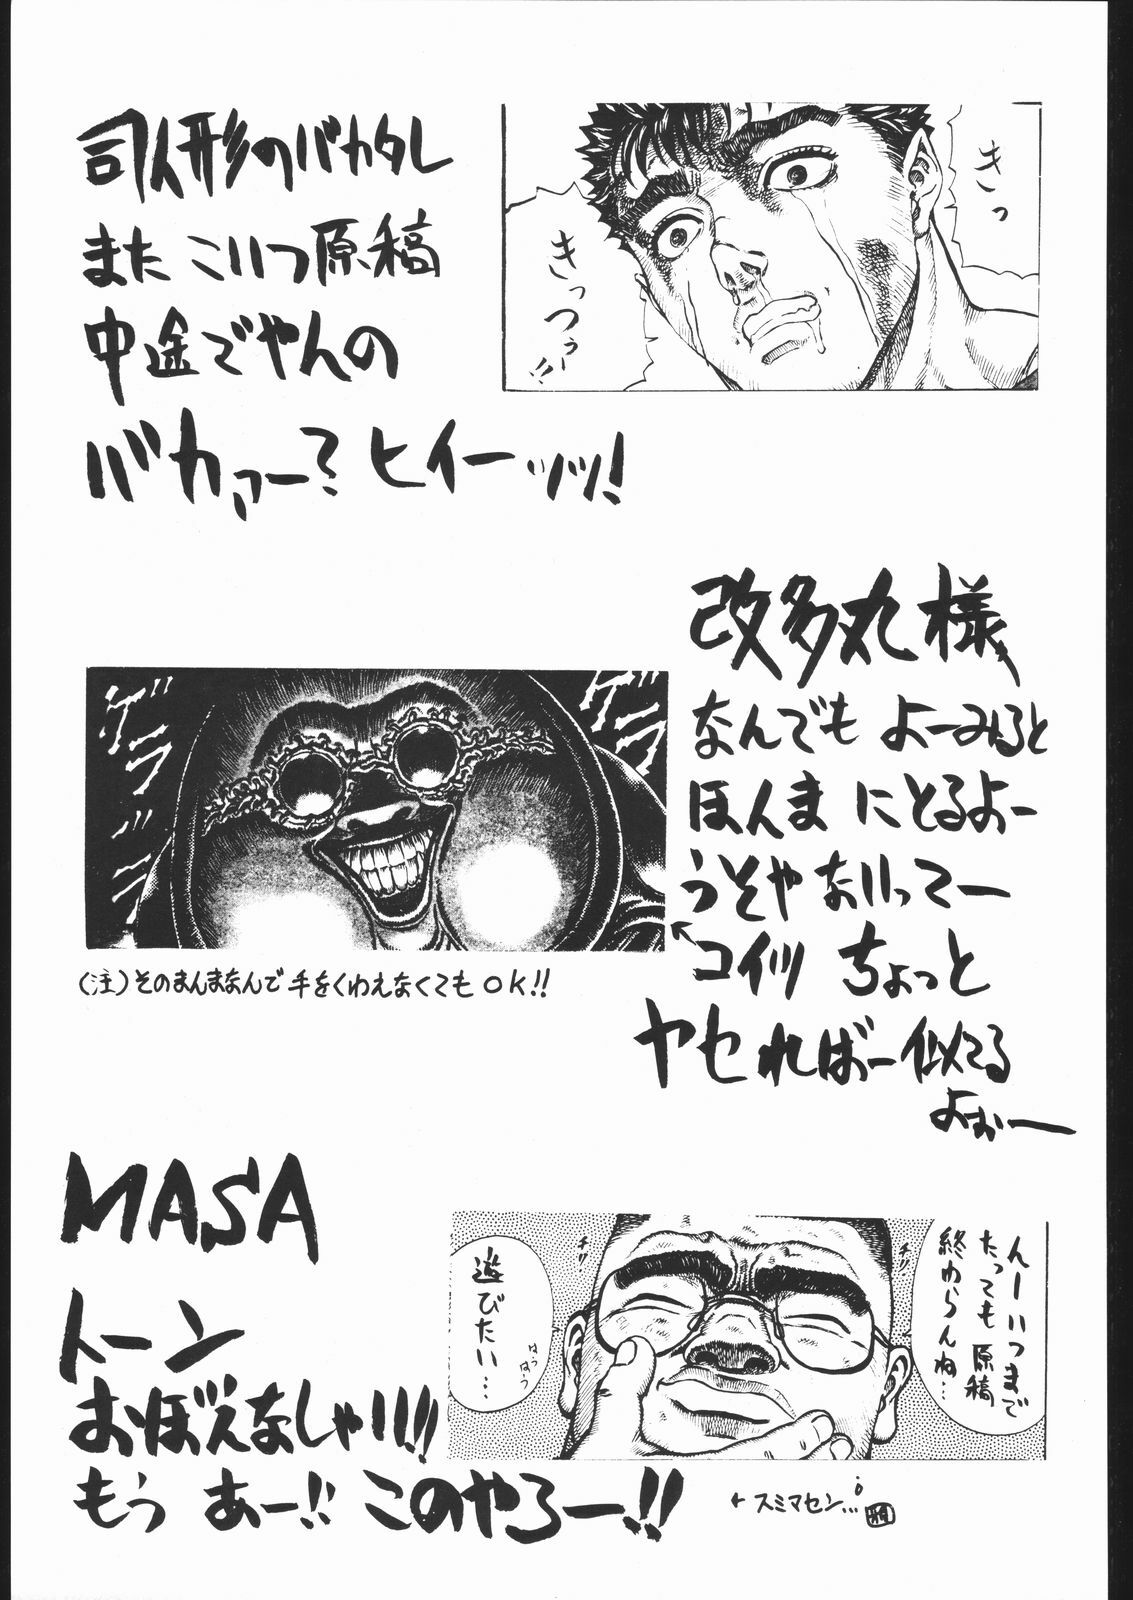 司人形のバカタレ
また こいつ原稿
中途でやんの
バカァー? ヒイーッッ!
きっ
きっつぅー!!
改多丸様
なんでも よーみると
ほんま にとるよー
うそや ないってー
←コイツ ちょっと
ヤセればー似てる
よぉー
ゲラゲラ
ゲラゲラ
(注)そのまんまなんで 手をくわえなくても OK!!
MASA
トーン
おぼえなしゃい!!
もう あー!! このやろー!!
んーいつまで
たっても原稿
終わらんね…
遊びたい…
はう
はう
←スミマセン…